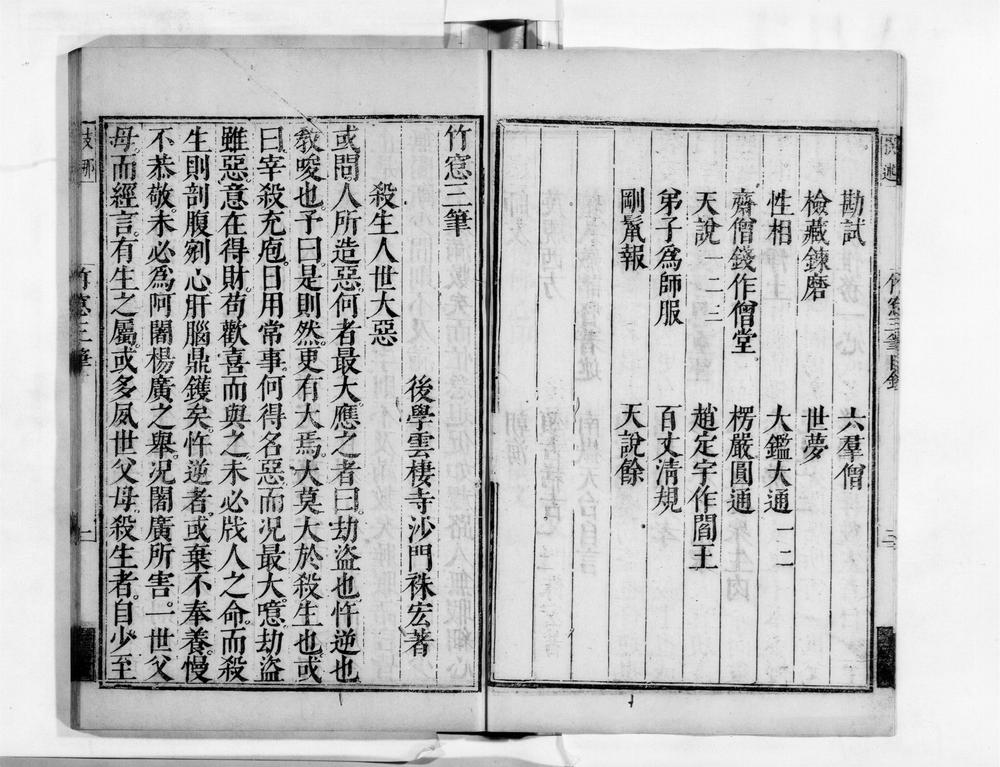 勘試　六羣僧
檢藏鍊磨　世夢
性相　大鑑大通一二
齋僧錢作僧堂　楞嚴圓通
天說一二三　趙定宇作閻王
弟子爲師服　百丈淸規
剛鬣報　天說餘
竹窻三筆
後學雲棲寺沙門袾宏著
殺生人世大惡
或問人所造惡何者最大應之者曰劫盜也忤逆也
敎唆也予曰是則然更有大焉大莫大於殺生也或
曰宰殺充庖日用常事何得名惡而况最大噫劫盜
雖惡意在得財苟歡喜而與之未必戕人之命而殺
生則剖腹剜心肝腦鼎鑊矣忤逆者或棄不奉養慢
不恭敬未必爲阿闍楊廣之舉况闍廣所害一世父
母而經言有生之屬或多夙世父母殺生者自少至
竹窻三筆